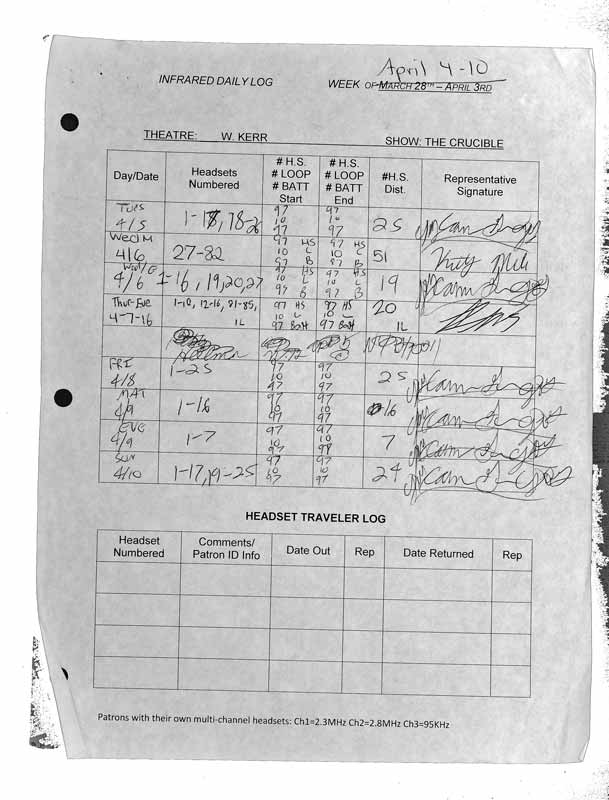 April 4-10
INFRARED DAILY LOG WEEK OF MARCH 28TH – APRIL 3RD
THEATRE: W. KERR SHOW: THE CRUCIBLE
Day/Date Headsets Numbered # H.S. # LOOP # BATT Start # H.S. # LOOP # BATT End #H.S. Dist. Representative Signature
TUES 4/5 97 10 97 97 10 97 25
Wed/M 4/6 27-82 97 HS 10 L 97 B 97 HS 10 L 97 B 51
4/6 1-16, 19, 20, 27 97 HS 10 L 97 B 97 HS 10 L 97 B 19
Thur-Eve 4-7-16 1-10, 12-16, 81-85, 1L 97 HS 10 L 97 Batt 97 HS 10 L 97 Batt 20 1L
FRI 4/8 1-25 97 10 97 97 10 97 25
MAT 4/9 1-16 97 10 97 97 10 97 16
EVE 4/9 1-7 97 10 97 97 10 7
SUN 4/10 1-17, 19-25 97 10 97 97 10 97 24
HEADSET TRAVELER LOG
Headset Numbered Comments/ Patron ID Info Date Out Rep Date Returned Rep
Patrons with their own multi-channel headsets: Ch1=2.3MHz Ch2=2.8MHz Ch3=95KHz